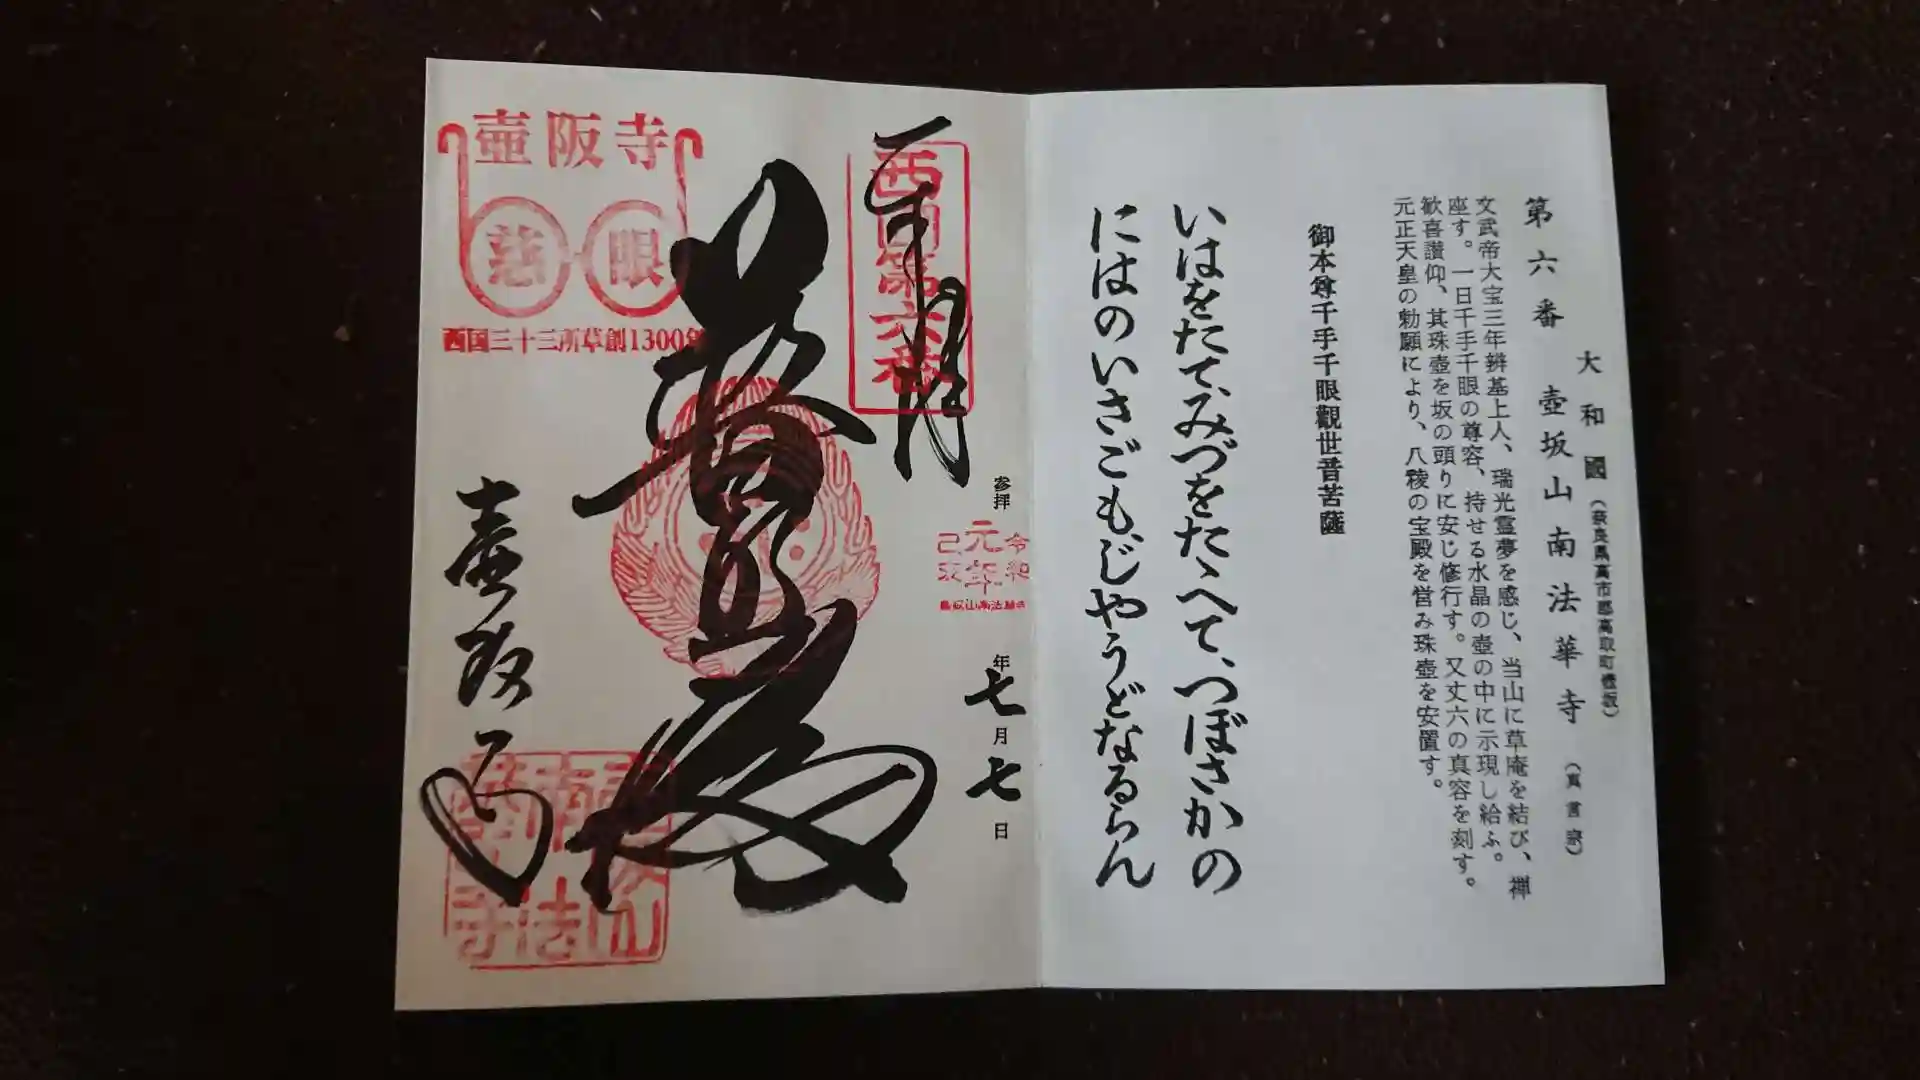 大和國（奈良県高市郡高取町壺坂）
第六番 壺坂山南法華寺（真言宗）
文武帝大宝三年辨基上人、瑞光霊夢を感じ、当山に草庵を結び、禅
座す。一日千手千眼の尊容、持せる水晶の壺の中に示現し給ふ。
歓喜讃仰、其珠壺を坂の頭りに安じ修行す。又丈六の真容を刻す。
元正天皇の勅願により、八稜の宝殿を営み珠壺を安置す。
御本尊千手千眼觀世音菩薩
いはをたて、みづをたゝへて、つぼさかの
にはのいさごも、じやうどなるらん
参拝
令和
元年
己亥
壺阪山南法華寺
年七月七日
奉拝
西国第六番
普照殿
壺阪寺
慈眼
西国三十三所草創1300年
壺阪寺